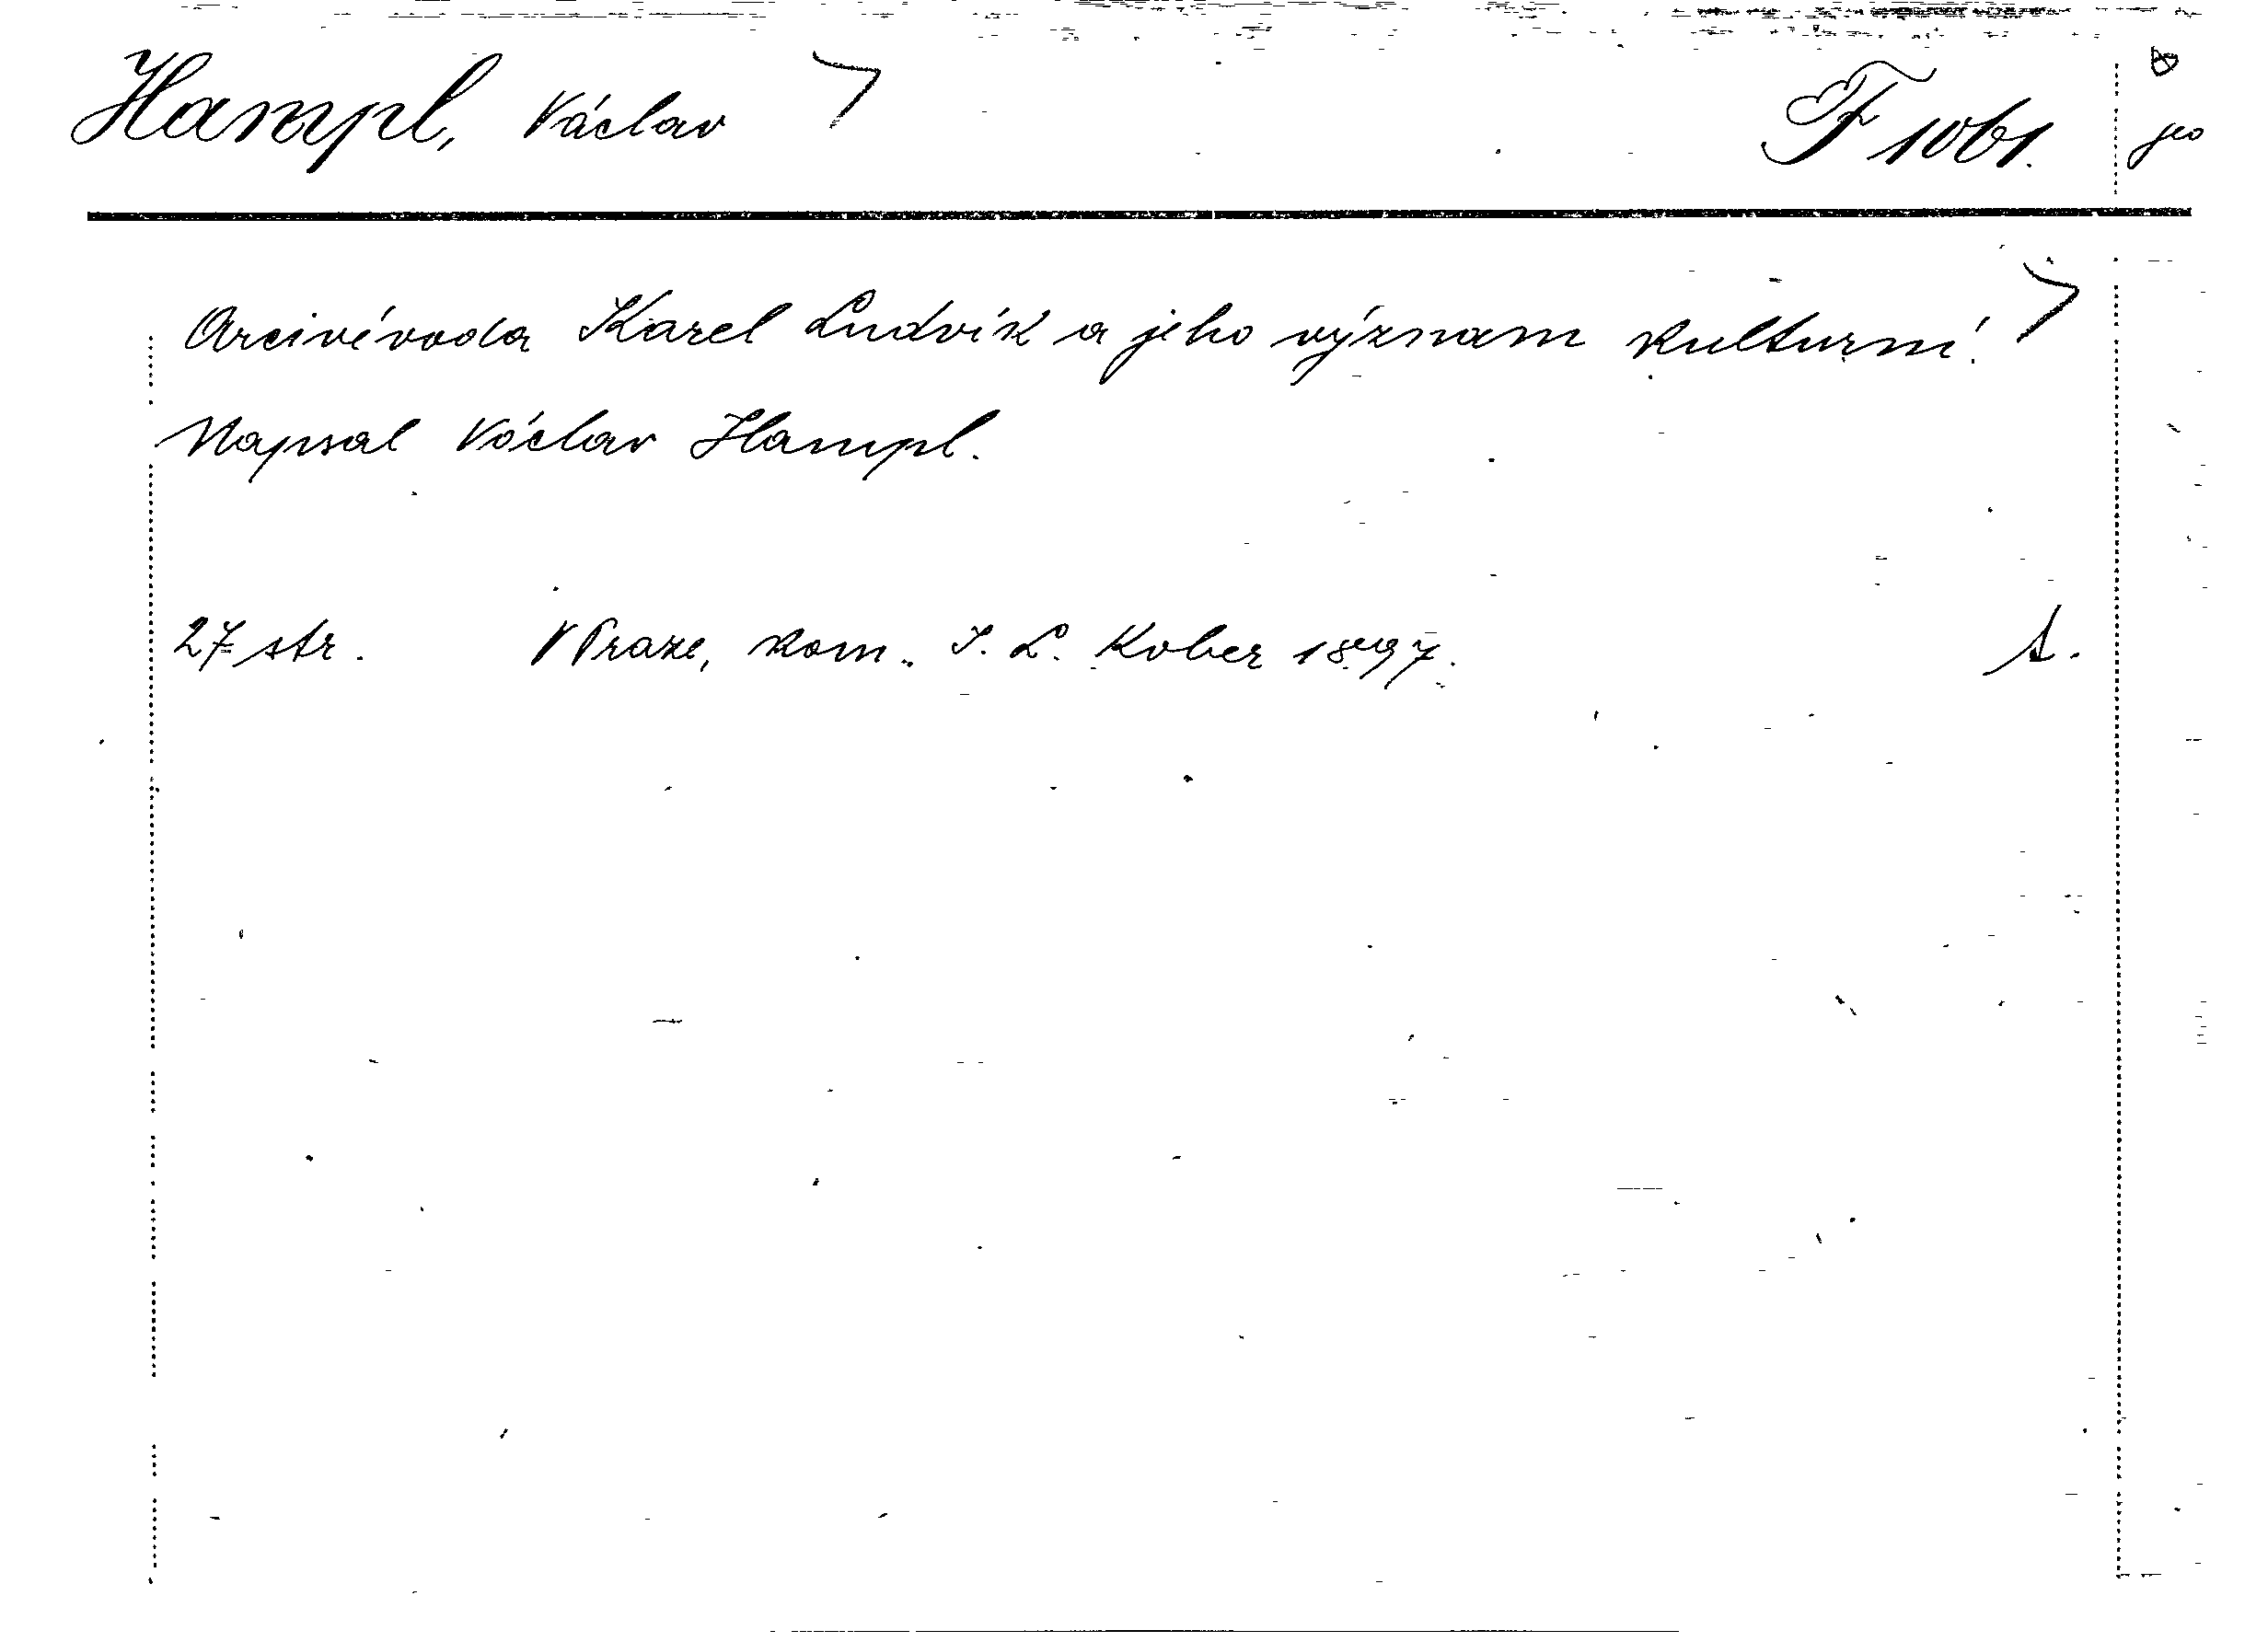 Hampl, Václav F 1061.
Arcivévoda Karel Ludvík a jeho význam kulturní.
Napsal Václav Hampl.
27 str. V Praze, kom. I. L. Kober 1897.